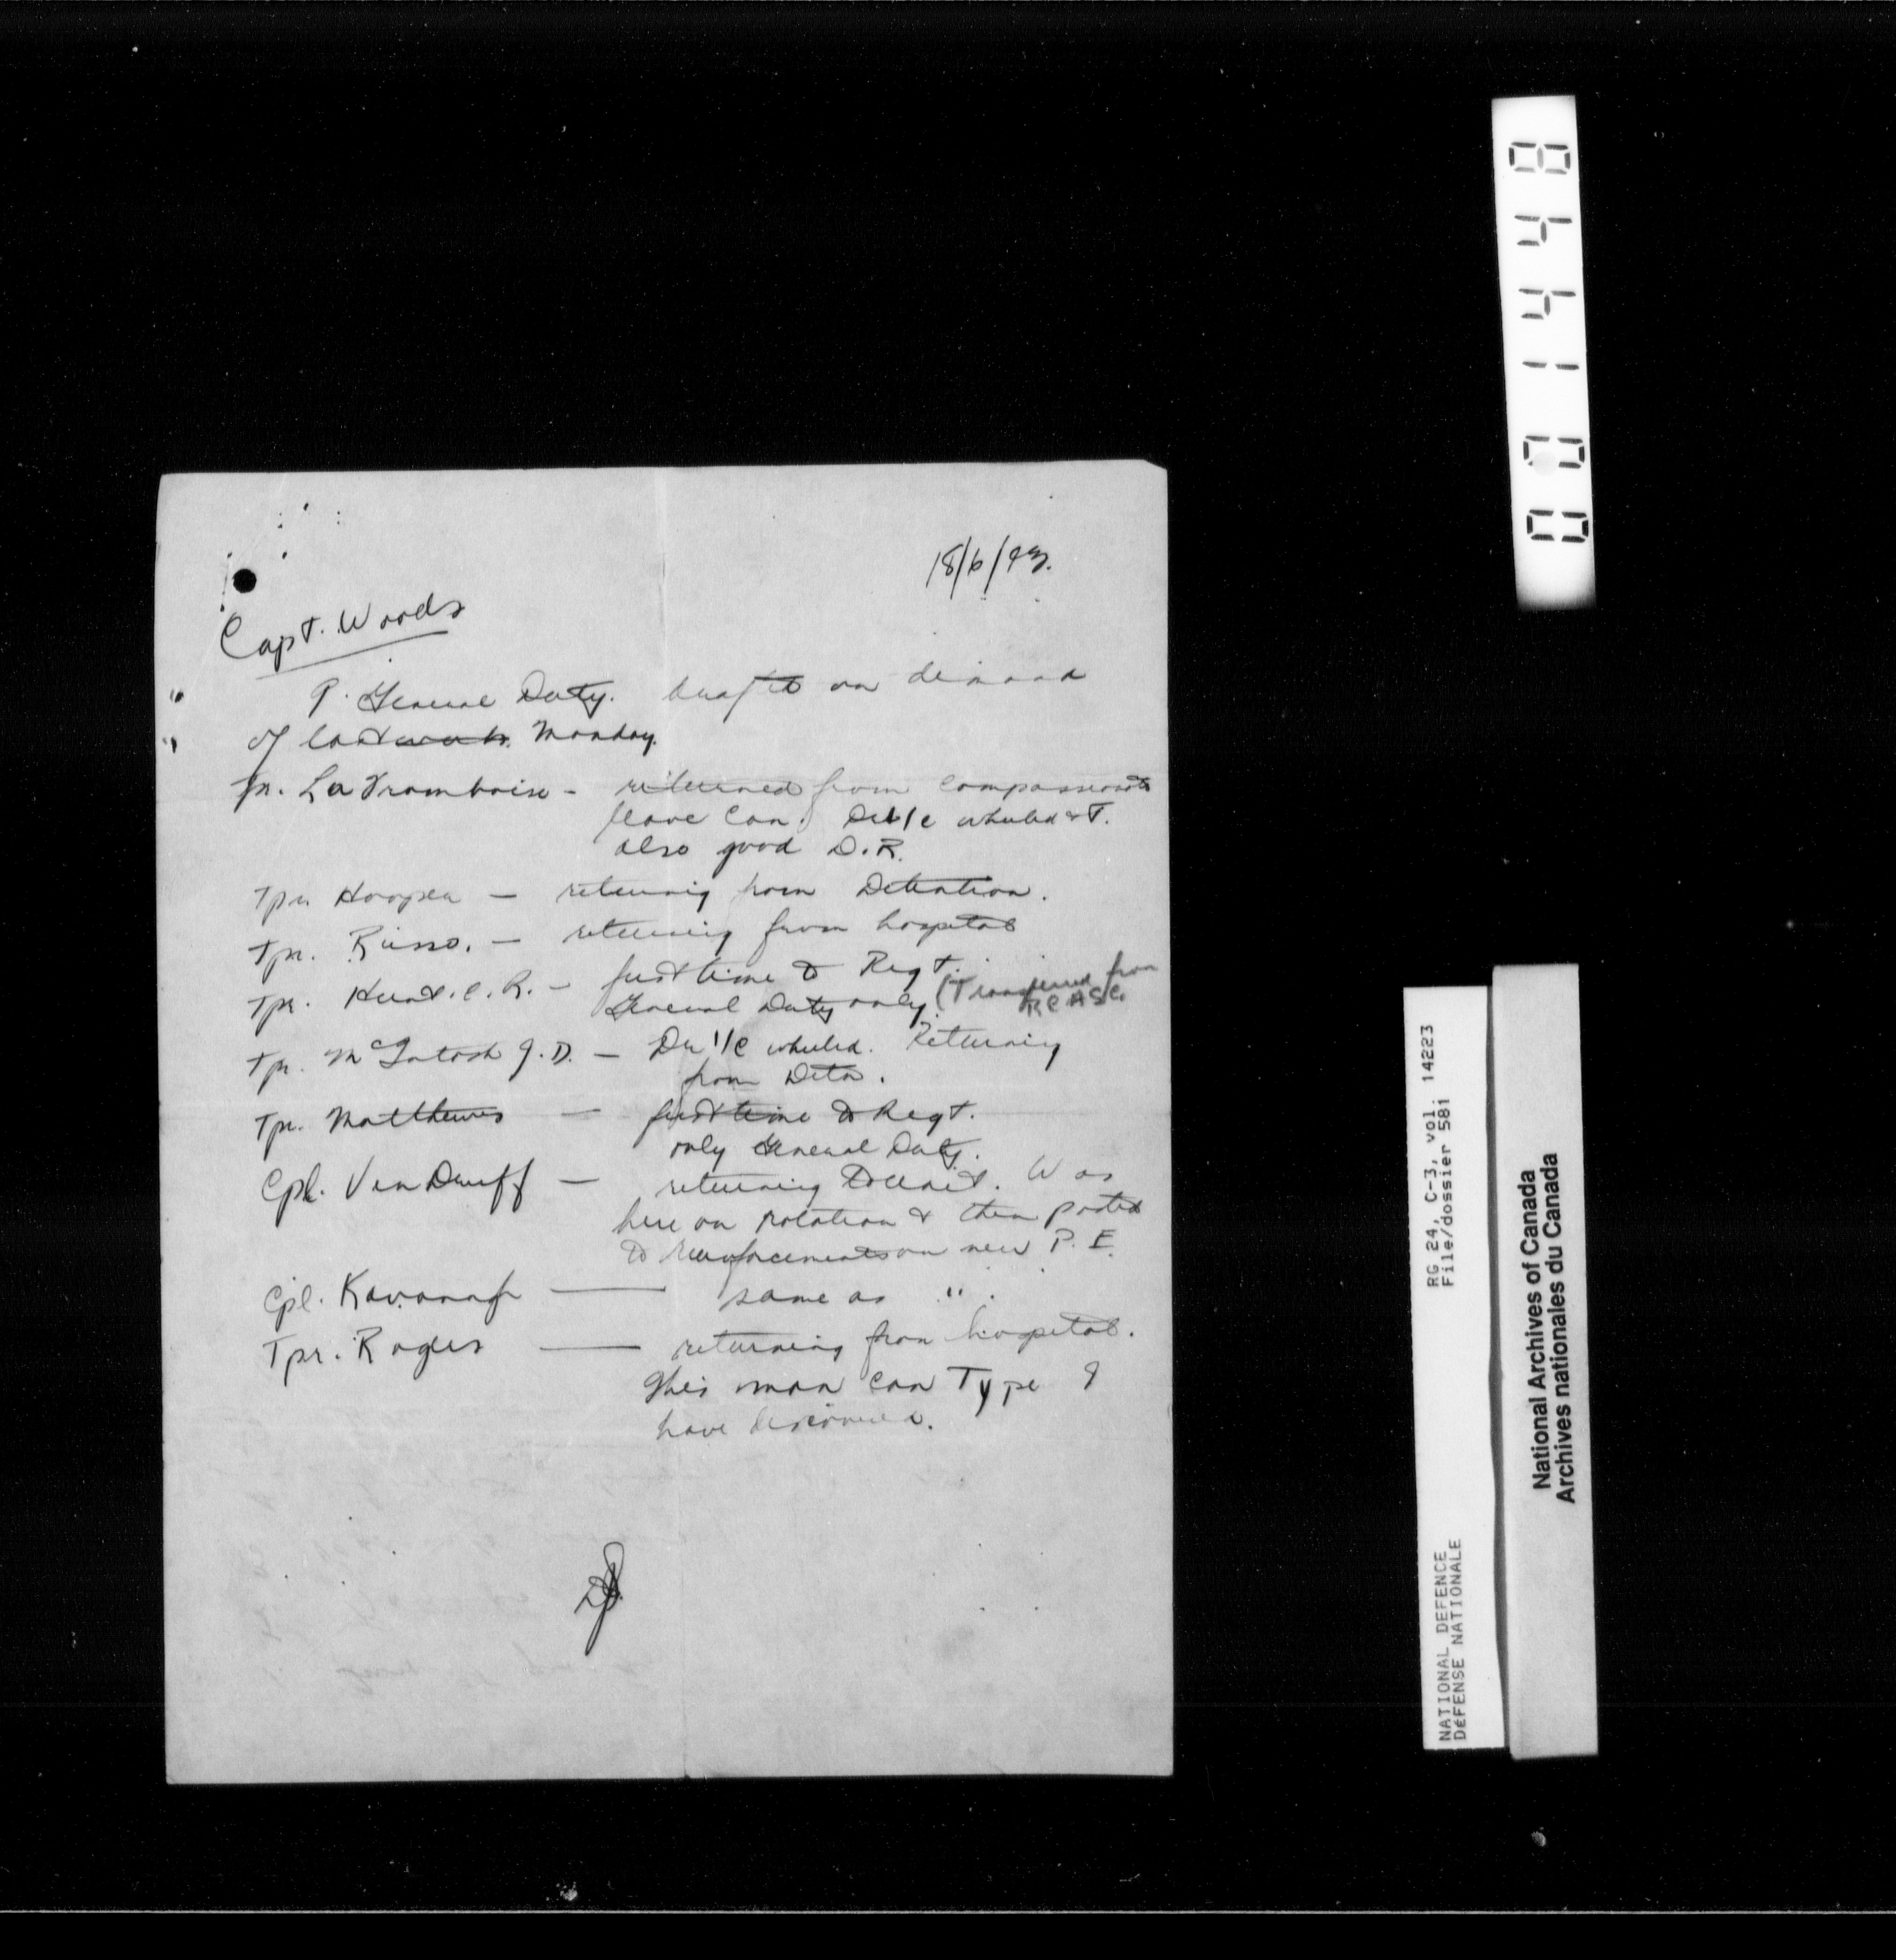 18/6/43.
Capt. Woods
9. General Duty. on demand
of last week Monday.
Tpr. La Framboise - returned from compassionate
leave Can. Dvr i/c wheeled & T.
also good D.R.
Tpr. Hooper - returning from Detention.
Tpr. Russo. - returning from hospital
Tpr. Hunt. C. R. - first time to Regt.
General Duty only. (Transferred from
RCASC.
Tpr. McIntosh J. D. - Dvr i/c wheeled. Returning
from Detn.
Tpr. Matthews - first time to Regt.
only General Duty.
Cpl. Van Druff - returning to unit. Was
here on rotation & then posted
to reinforcements on new P. E.
Cpl. Kavanagh - same as " .
Tpr. Rogers - returning from hospital.
This man can Type I
have discovered.
001448
RG 24, C-3, vol. 14223
File/dossier 581
NATIONAL DEFENCE
DÉFENSE NATIONALE
National Archives of Canada
Archives nationales du Canada